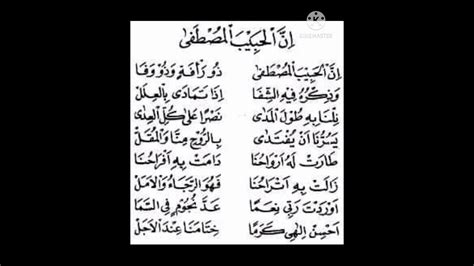 KINEMASTER
اِنَّ الْحَبِيْبَ الْمُصْطَفَى
اِنَّ الْحَبِيْبَ الْمُصْطَفَى ذُوْ رَأْفَةٍ وَذُوْ وَفَا
وَذِكْرُهُ فِيْهِ الشِّفَا اِذَا تَمَادَى بِالْعِلَلْ
نِلْنَا بِهِ طُوْلَ الْمَدَى نَصْرًا عَلَى كُلِّ الْعِدَى
يَسُرُّنَا اَنْ يُفْتَدَى بِالرُّوْحِ مِنَّا وَالْمُقَلْ
طَارَتْ لَهُ اَرْوَاحُنَا دَامَتْ بِهِ اَفْرَاحُنَا
زَالَتْ بِهِ اَتْرَاحُنَا فَهُوَ الرَّجَاءُ وَالْاَمَلْ
اَوْرَدْتَ رَبِّي نِعَمًا عَدَّ نُجُوْمٍ فِي السَّمَا
اَحْسِنْ اِلٰهِي كَرَمًا خِتَامَنَا عِنْدَ الْاَجَلْ